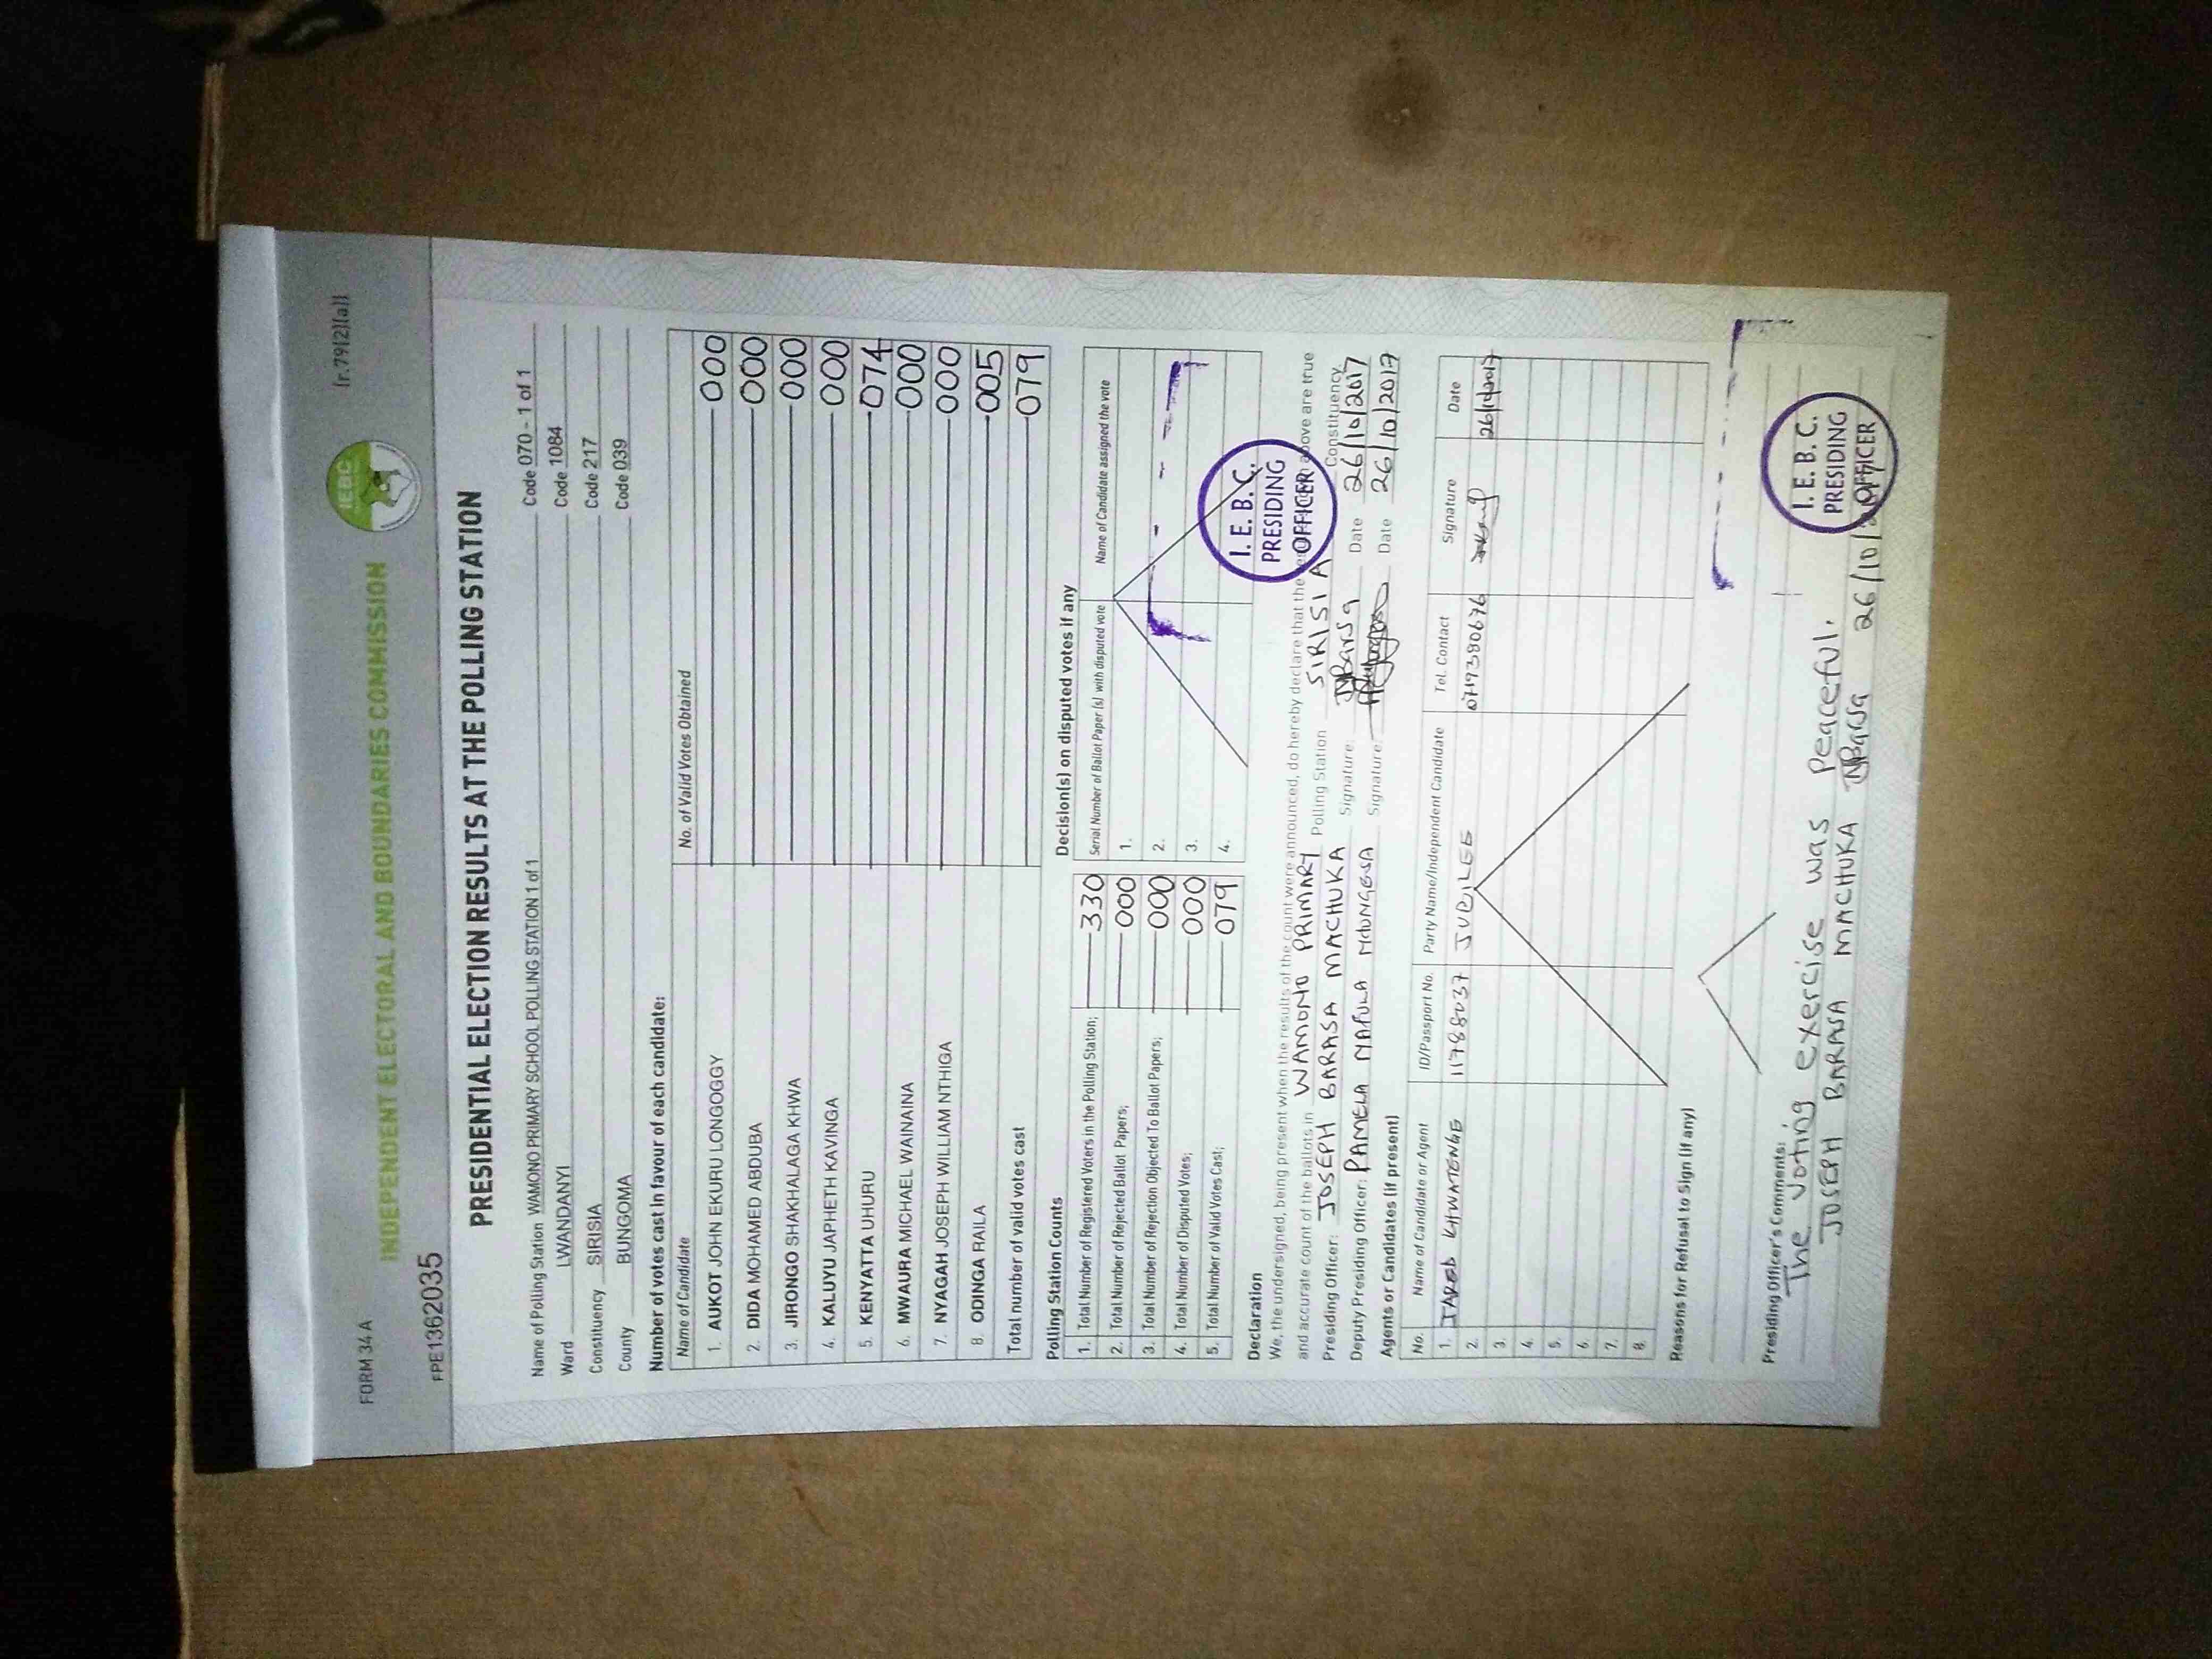 FORM 34 A
(r.79(2)(a))
IEBC
INDEPENDENT ELECTORAL AND BOUNDARIES COMMISSION
FPE1362035
PRESIDENTIAL ELECTION RESULTS AT THE POLLING STATION
Name of Polling Station WAMONO PRIMARY SCHOOL POLLING STATION 1 of 1 Code 070 - 1 of 1
Ward LWANDANYI Code 1084
Constituency SIRISIA Code 217
County BUNGOMA Code 039
Number of votes cast in favour of each candidate:
Name of Candidate No. of Valid Votes Obtained
1. AUKOT JOHN EKURU LONGOGGY 000
2. DIDA MOHAMED ABDUBA 000
3. JIRONGO SHAKHALAGA KHWA 000
4. KALUYU JAPHETH KAVINGA 000
5. KENYATTA UHURU 074
6. MWAURA MICHAEL WAINAINA 000
7. NYAGAH JOSEPH WILLIAM NTHIGA 000
8. ODINGA RAILA 005
Total number of valid votes cast 079
Polling Station Counts
1. Total Number of Registered Voters in the Polling Station; 330
2. Total Number of Rejected Ballot Papers; 000
3. Total Number of Rejection Objected To Ballot Papers; 000
4. Total Number of Disputed Votes; 000
5. Total Number of Valid Votes Cast; 079
Decision(s) on disputed votes if any
Serial Number of Ballot Paper (s) with disputed vote Name of Candidate assigned the vote
1.
2.
3.
4.
I.E.B.C.
PRESIDING
OFFICER
Declaration
We, the undersigned, being present when the results of the count were announced, do hereby declare that the above are true
and accurate count of the ballots in WAMONO PRIMARY Polling Station SIRISIA Constituency
Presiding Officer: JOSEPH BARASA MACHUKA Signature: JMBarasa Date 26/10/2017
Deputy Presiding Officer: PAMELA NAFULA Signature: Date 26/10/2017
Agents or Candidates (if present)
No. Name of Candidate or Agent ID/Passport No. Party Name/Independent Candidate Tel. Contact Signature Date
1. JARED KHWATENGE 11788037 JUBILEE 0719380676 26/10/2017
2.
3.
4.
5.
6.
7.
8.
Reasons for Refusal to Sign (if any)
Presiding Officer's Comments:
The voting exercise was peaceful.
JOSEPH BARASA MACHUKA JMBarasa 26/10/2017
I.E.B.C.
PRESIDING
OFFICER